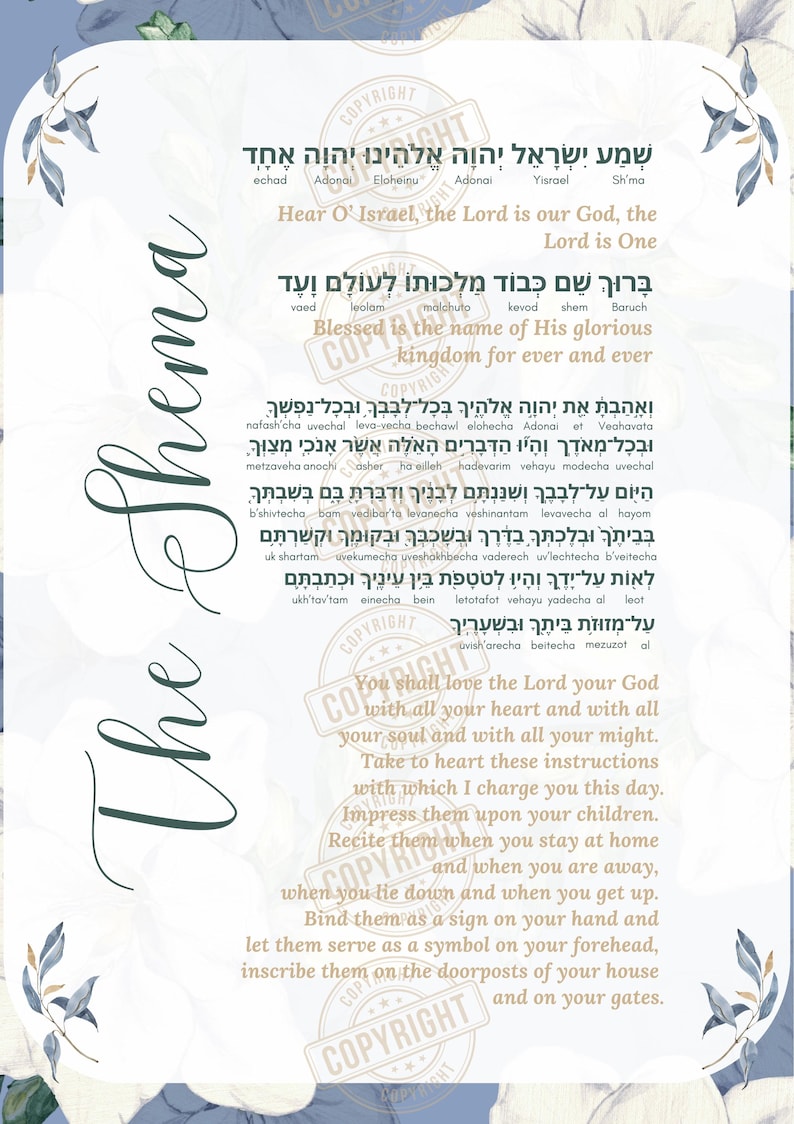 The Shema
שְׁמַע יִשְׂרָאֵל יְהוָה אֱלֹהֵינוּ יְהוָה אֶחָֽד
echad Adonai Eloheinu Adonai Yisrael Sh'ma
Hear O' Israel, the Lord is our God, the
Lord is One
בָּרוּךְ שֵׁם כְּבוֹד מַלְכוּתוֹ לְעוֹלָם וָעֶד
vaed leolam malchuto kevod shem Baruch
Blessed is the name of His glorious
kingdom for ever and ever
וְאָ֣הַבְתָּ֔ אֵ֖ת יְהוָ֣ה אֱלֹהֶ֑יךָ בְּכָל־לְבָבְךָ֥ וּבְכָל־נַפְשְׁךָ֖
nafash'cha uvechal leva-vecha bechawl elohecha Adonai et Veahavata
וּבְכָל־מְאֹדֶֽךָ וְהָי֞וּ הַדְּבָרִ֣ים הָאֵ֗לֶּה אֲשֶׁ֨ר אָנֹכִ֧י מְצַוְּךָ֛
metzaveha anochi asher ha eilleh hadevarim vehayu modecha uvechal
הַיּ֖וֹם עַל־לְבָבֶֽךָ וְשִׁנַּנְתָּ֣ם לְבָנֶ֔יךָ וְדִבַּרְתָּ֖ בָּ֑ם בְּשִׁבְתְּךָ֤
b'shivtecha bam vedibar'ta levanecha veshinantam levavecha al hayom
בְּבֵיתֶ֙ךָ֙ וּבְלֶכְתְּךָ֣ בַדֶּ֔רֶךְ וּֽבְשָׁכְבְּךָ֖ וּבְקוּמֶֽךָ וּקְשַׁרְתָּ֥ם
uk shartam uvekumecha uveshakhbecha vaderech uv'lechtecha b'veitecha
לְא֖וֹת עַל־יָדֶ֑ךָ וְהָי֥וּ לְטֹטָפֹ֖ת בֵּ֥ין עֵינֶֽיךָ וּכְתַבְתָּ֛ם
ukh'tav'tam einecha bein letotafot vehayu yadecha al leot
עַל־מְזוּזֹ֥ת בֵּיתֶ֖ךָ וּבִשְׁעָרֶֽיךָ
uvish'arecha beitecha mezuzot al
You shall love the Lord your God
with all your heart and with all
your soul and with all your might.
Take to heart these instructions
with which I charge you this day.
Impress them upon your children.
Recite them when you stay at home
and when you are away,
when you lie down and when you get up.
Bind them as a sign on your hand and
let them serve as a symbol on your forehead,
inscribe them on the doorposts of your house
and on your gates.
COPYRIGHT
COPYRIGHT
COPYRIGHT